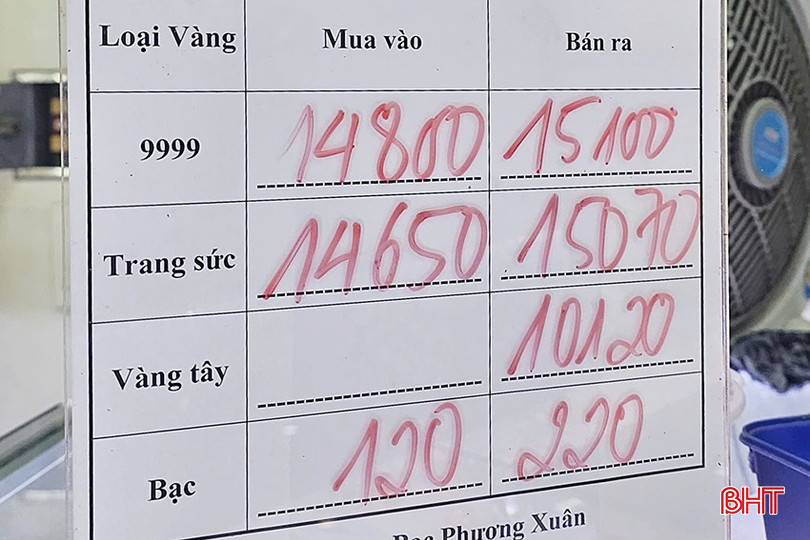 Loại Vàng Mua vào Bán ra
9999 14800 15100
Trang sức 14650 15070
Vàng tây 10120
Bạc 120 220
Bạc Phương Xuân
BHT